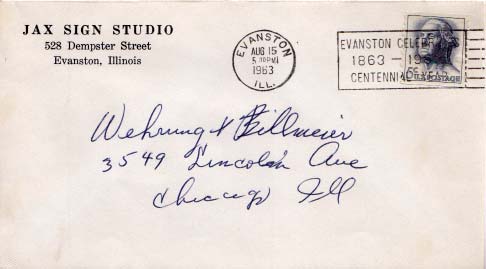 JAX SIGN STUDIO
528 Dempster Street
Evanston, Illinois
EVANSTON
AUG 15
5 30PM
1963
ILL.
EVANSTON CELEBR
1863 - 196
CENTENNIAL YEAR
U.S. POSTAGE
Wehrung & Billmeier
3549 Lincoln Ave
Chicago Ill